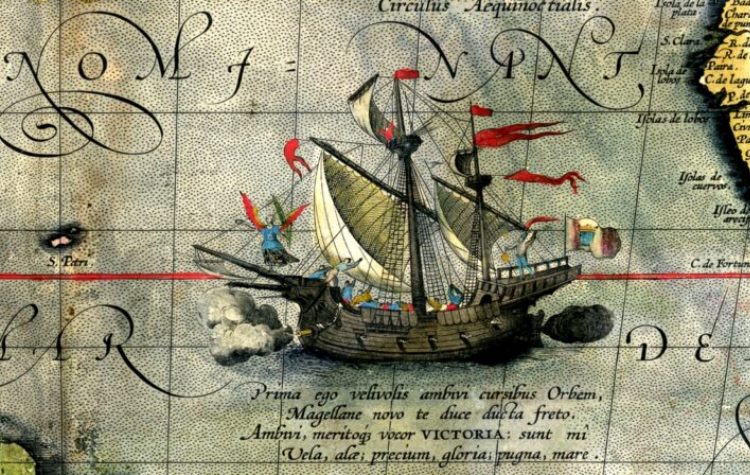 Circulus Aequinoctialis.
Isola de la
plata.
NOMI= NANT
S. Clara
R. de
Paira.
Isola de
lobos
C. de
P. de
Isolas de lobos
Isolas de
cuervos.
Isleo de
S. Petri.
C. de
AR DE
Prima ego velivolis ambivi cursibus Orbem,
Magellane novo te duce ducta freto.
Ambivi, meritoq; vocor VICTORIA: sunt mî
Vela, alæ; precium, gloria; pugna, mare.